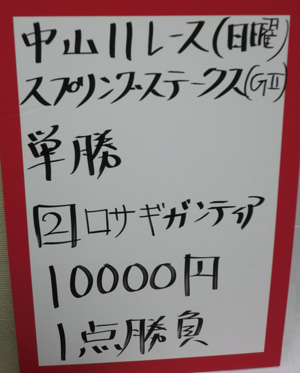 中山11レース(日曜)
スプリングステークス(GII)
単勝
2 ロサギガンティア
10000円
1点勝負